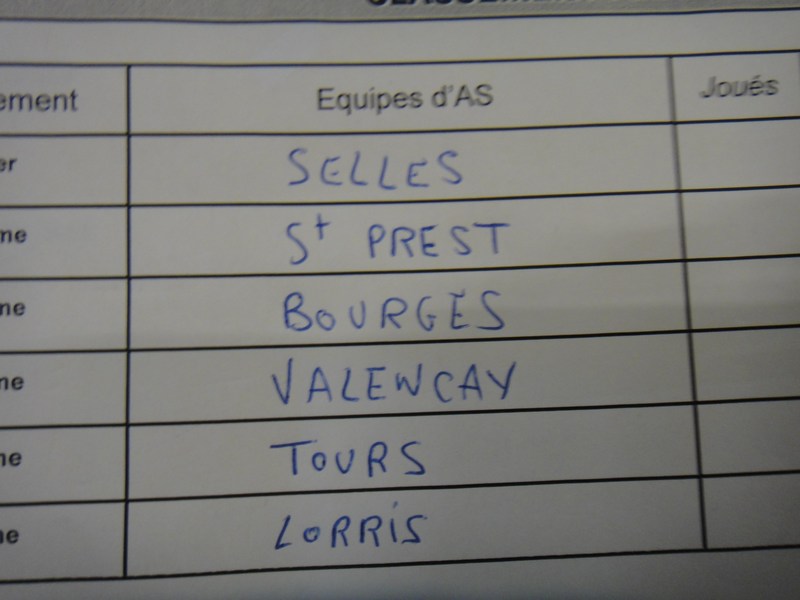 ement Equipes d'AS Joués
er SELLES
me St PREST
me BOURGES
me VALENCAY
me TOURS
me LORRIS